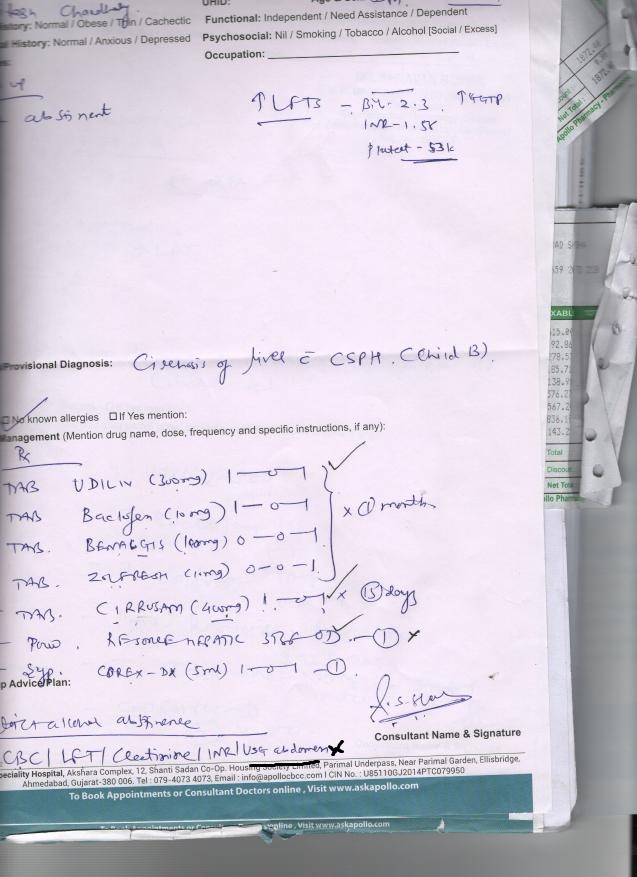 UHID:
History: Normal / Obese / Thin / Cachectic
Functional: Independent / Need Assistance / Dependent
al History: Normal / Anxious / Depressed
Psychosocial: Nil / Smoking / Tobacco / Alcohol [Social / Excess]
Occupation:
up
- abstinent
↑ LFTS - Bil - 2.3 ↑ GGTP
INR - 1.58
platet - 53k
Provisional Diagnosis: Cirrhosis of liver c CSPH. (Child B).
No known allergies If Yes mention:
Management (Mention drug name, dose, frequency and specific instructions, if any):
Rx
TAB UDILIV (300mg) 1-0-1
TAB Baclofen (10mg) 1-0-1
x 1 months
TAB. BENALGIS (100mg) 0-0-1
TAB. ZOLFRESH (10mg) 0-0-1.
TAB. CIRRUSAM (400mg) 1-0-1 x 15 days
- Pow. RESOURCE HEPATIC 3TSF OD - 1 x
- Syp. COREX-DX (5ml) 1-0-1 - 1.
p Advice/Plan:
strict alcohol abstinence
Consultant Name & Signature
CBC / LFT / Creatinine / INR / USG abdomen
peciality Hospital, Akshara Complex, 12, Shanti Sadan Co-Op. Housing Society Limited, Parimal Underpass, Near Parimal Garden, Ellisbridge,
Ahmedabad, Gujarat-380 006. Tel : 079-4073 4073, Email : info@apollocbcc.com I CIN No. : U85110GJ2014PTC079950
To Book Appointments or Consultant Doctors online , Visit www.askapollo.com
online , Visit www.askapollo.com
1872.
Net Total :
Apollo Pharmacy - Pharm
XABL
92.86
Total
Discou
Net Tota
llo Pharma